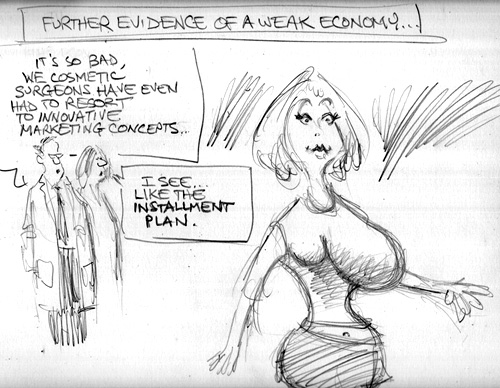 FURTHER EVIDENCE OF A WEAK ECONOMY...
IT'S SO BAD,
WE COSMETIC
SURGEONS HAVE EVEN
HAD TO RESORT
TO INNOVATIVE
MARKETING CONCEPTS...
I SEE...
LIKE THE
INSTALLMENT
PLAN.